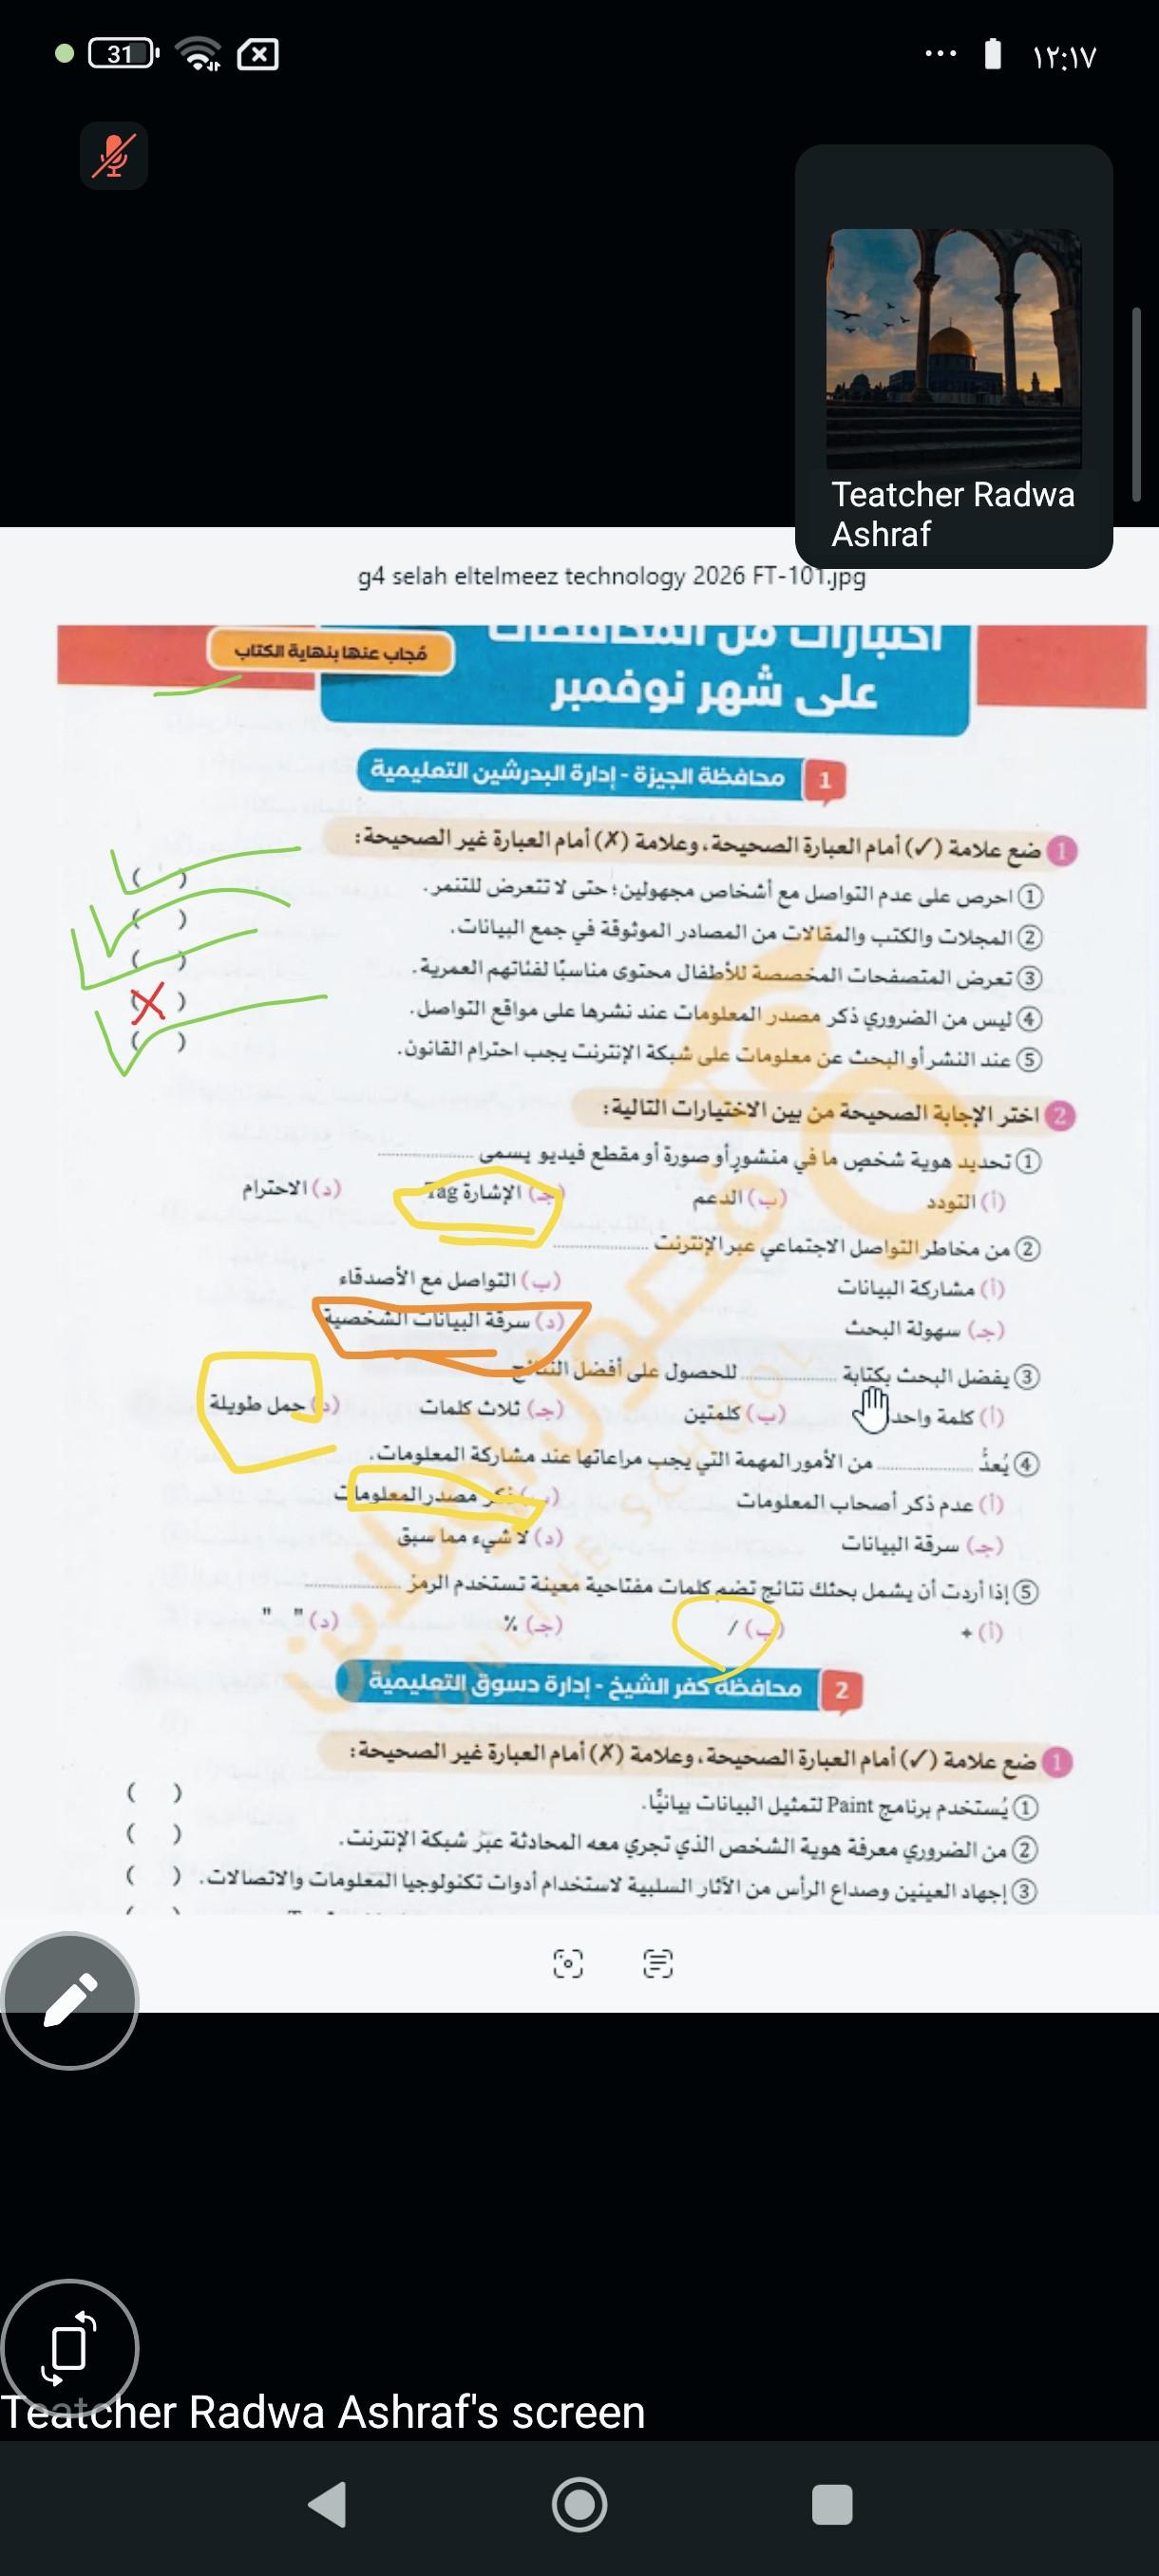 31
... ١٢:١٧
Teatcher Radwa
Ashraf
g4 selah eltelmeez technology 2026 FT-101.jpg
اختبارات من المحافظات
مُجاب عنها بنهاية الكتاب
على شهر نوفمبر
1 محافظة الجيزة - إدارة البدرشين التعليمية
1 ضع علامة (✓) أمام العبارة الصحيحة، وعلامة (✗) أمام العبارة غير الصحيحة:
① احرص على عدم التواصل مع أشخاص مجهولين؛ حتى لا تتعرض للتنمر. ( )
② المجلات والكتب والمقالات من المصادر الموثوقة في جمع البيانات. ( )
③ تعرض المتصفحات المخصصة للأطفال محتوى مناسبًا لفئاتهم العمرية. ( )
④ ليس من الضروري ذكر مصدر المعلومات عند نشرها على مواقع التواصل. ( )
⑤ عند النشر أو البحث عن معلومات على شبكة الإنترنت يجب احترام القانون. ( )
2 اختر الإجابة الصحيحة من بين الاختيارات التالية:
① تحديد هوية شخص ما في منشور أو صورة أو مقطع فيديو يسمى ............
(أ) التودد (ب) الدعم (جـ) الإشارة Tag (د) الاحترام
② من مخاطر التواصل الاجتماعي عبر الإنترنت ............
(أ) مشاركة البيانات (ب) التواصل مع الأصدقاء
(جـ) سهولة البحث (د) سرقة البيانات الشخصية
③ يفضل البحث بكتابة ............ للحصول على أفضل النتائج
(أ) كلمة واحد (ب) كلمتين (جـ) ثلاث كلمات (د) جمل طويلة
④ يُعدُّ ............ من الأمور المهمة التي يجب مراعاتها عند مشاركة المعلومات.
(أ) عدم ذكر أصحاب المعلومات (ب) ذكر مصدر المعلومات
(جـ) سرقة البيانات (د) لا شيء مما سبق
⑤ إذا أردت أن يشمل بحثك نتائج تضم كلمات مفتاحية معينة تستخدم الرمز ............
(أ) + (ب) / (جـ) % (د) " "
2 محافظة كفر الشيخ - إدارة دسوق التعليمية
1 ضع علامة (✓) أمام العبارة الصحيحة، وعلامة (✗) أمام العبارة غير الصحيحة:
① يُستخدم برنامج Paint لتمثيل البيانات بيانيًّا. ( )
② من الضروري معرفة هوية الشخص الذي تجري معه المحادثة عبر شبكة الإنترنت. ( )
③ إجهاد العينين وصداع الرأس من الآثار السلبية لاستخدام أدوات تكنولوجيا المعلومات والاتصالات. ( )
ONLINE SCHOOL
Teatcher Radwa Ashraf's screen